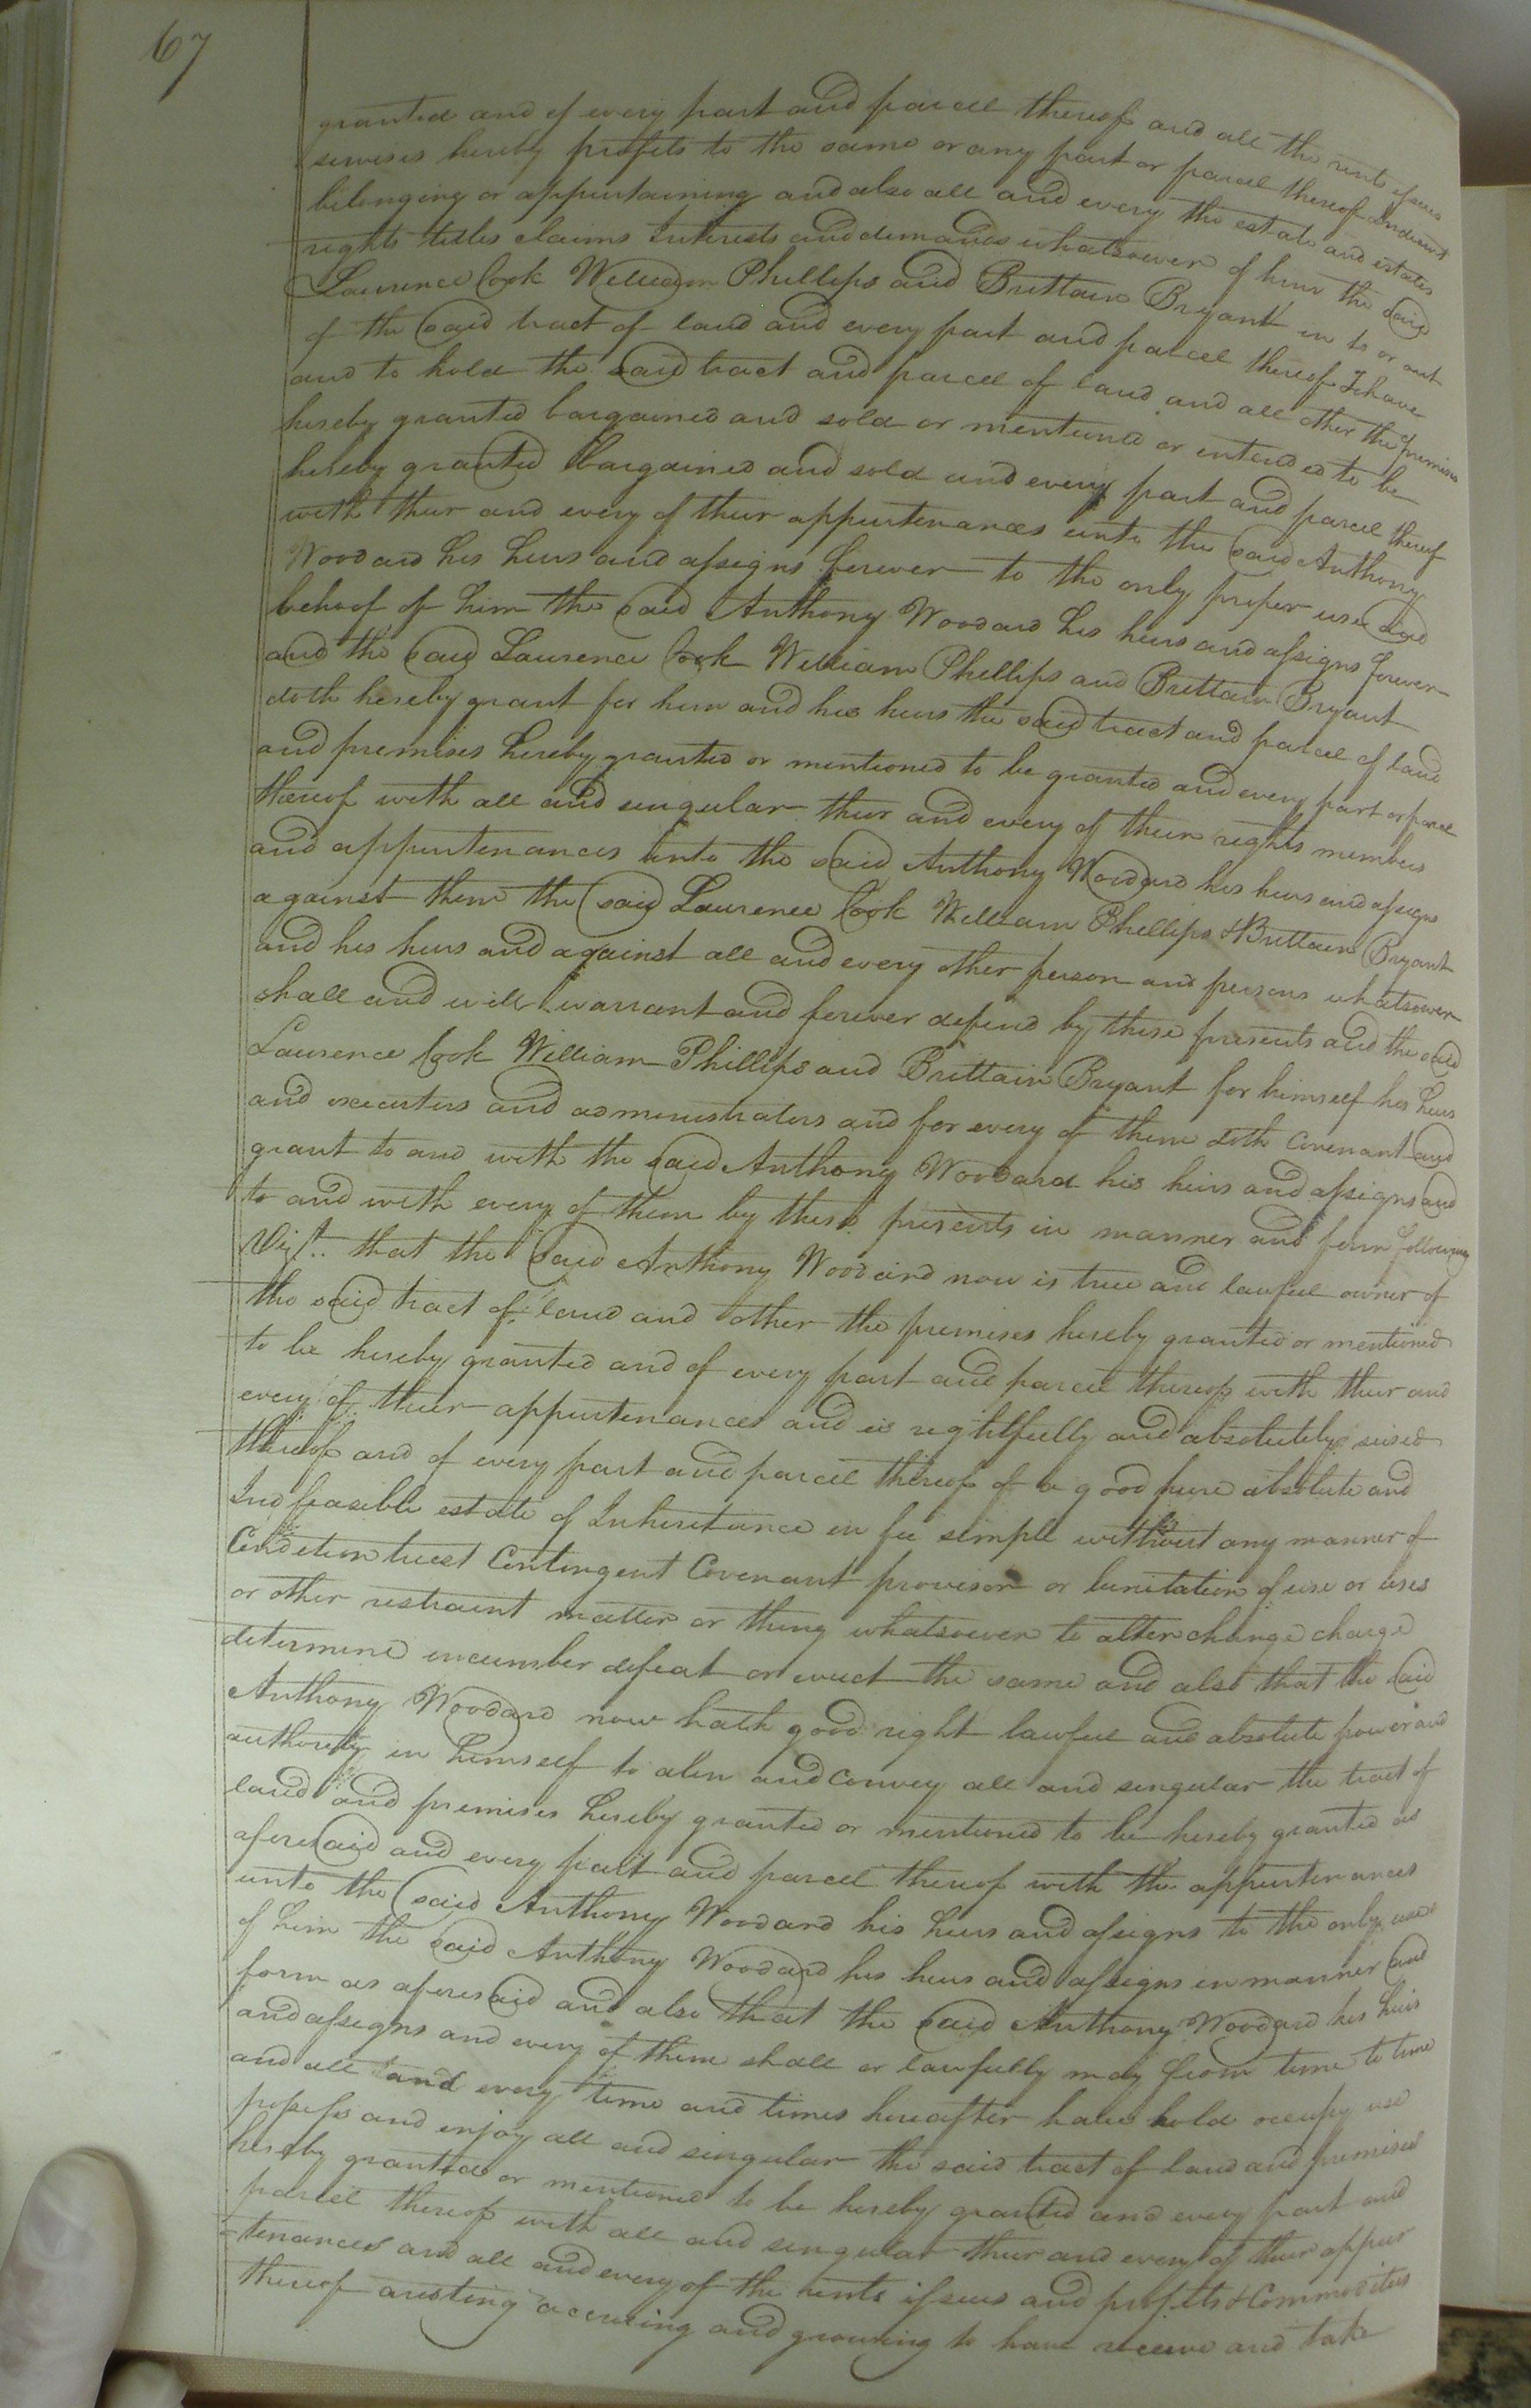 67
granted and of every part and parcell thereof and all the rents issues
servises hereby profets to the same or any part or parcel thereof
belonging or appurtaining and also all and every the estate and estates
rights titles claims Interests and demands whatsoever of him the said
Laurence Cook William Phillips and Brittain Bryant in to or out
of the said tract of land and every part and parcel thereof To have
and to hold the said tract and parcell of land and all other the premises
hereby granted bargained and sold or mentioned or intended to be
hereby granted bargained and sold and every part and parcel thereof
with thur and every of thur appurtenances unto the said Anthony
Woodard his heirs and assigns forever to the only proper use and
behoof of him the said Anthony Woodard his heirs and assigns forever
and the said Laurence Cook William Phillips and Brittain Bryant
doth hereby grant for him and his heirs the said tract and parcel of land
and premises hereby granted or mentioned to be granted and every part or parcel
thereof with all and singular thur and every of their rights members
and appurtenances unto the said Anthony Woodard his heirs and assigns
against them the said Laurence Cook William Phillips & Brittain Bryant
and his heirs and against all and every other person and persons whatsoever
shall and will warrant and forever defend by these presents and the said
Laurence Cook William Phillips and Brittain Bryant for himself his heirs
and executors and administrators and for every of them doth Covenant and
grant to and with the said Anthony Woodard his heirs and assigns and
to and with every of them by these presents in manner and form following
Vizt. that the said Anthony Woodard now is true and lawfull owner of
the said tract of land and other the premises hereby granted or mentioned
to be hereby granted and of every part and parcel thereof with thur and
every of thur appurtenances and is rightfully and absolutely seised
thereof and of every part and parcel thereof of a good pure absolute and
Indfeasible estate of Inheritance in fee simple without any manner of
Condition trust Contingent Covenant provisor or limitation of use or uses
or other restraint matter or thing whatsoever to alter change charge
determine incumber defeat or evict the same and also that the said
Anthony Woodard now hath good right lawfull and absolute power and
authority in himself to alin and convey all and singular the tract of
land and premises hereby granted or mentioned to be hereby granted as
aforesaid and every part and parcel thereof with the appurtenances
unto the said Anthony Woodard his heirs and assigns to the only use
of him the said Anthony Woodard his heirs and assigns in manner and
form as aforesaid and also that the said Anthony Woodard his heirs
and assigns and every of them shall or lawfully may from time to time
and all and every time and times hereafter have hold occupy use
possess and enjoy all and singular the said tract of land and premises
hereby granted or mentioned to be hereby granted and every part and
parcel thereof with all and singular thur and every of thur appur
-tenances and all and every of the rents issues and profits & Commodities
thereof aresting accruing and growing to have receive and take